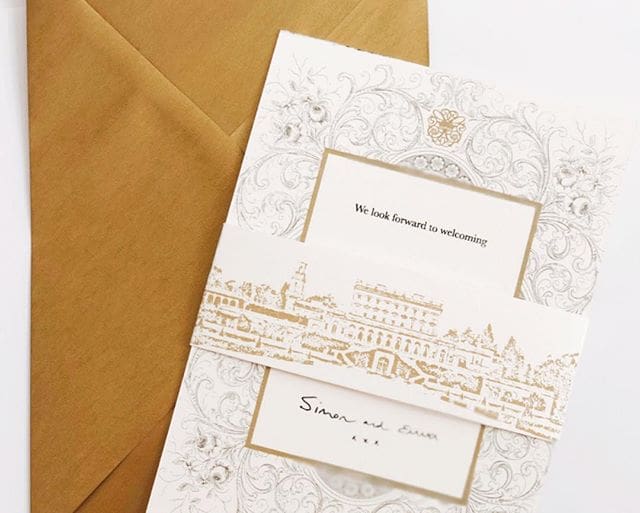 We look forward to welcoming
Simon and Emma
x x x